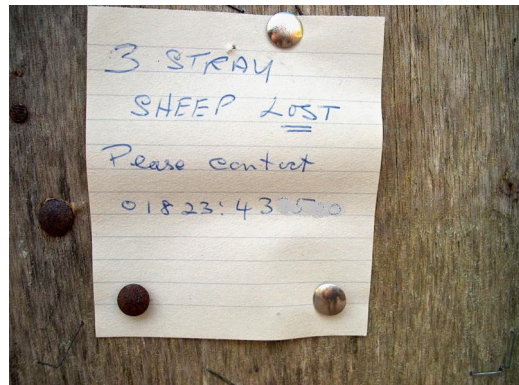 3 STRAY
SHEEP LOST
Please contact
01823:43